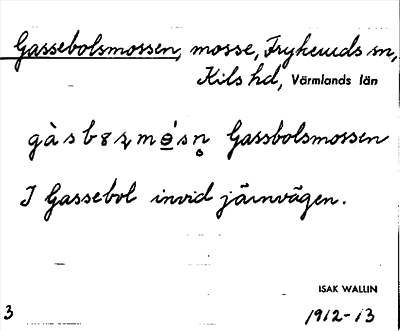 Gassebolsmossen, mosse, Frykeruds sn,
Kils hd, Värmlands län
Gassbolsmossen
I Gassebol invid järnvägen.
ISAK WALLIN
3
1912-13